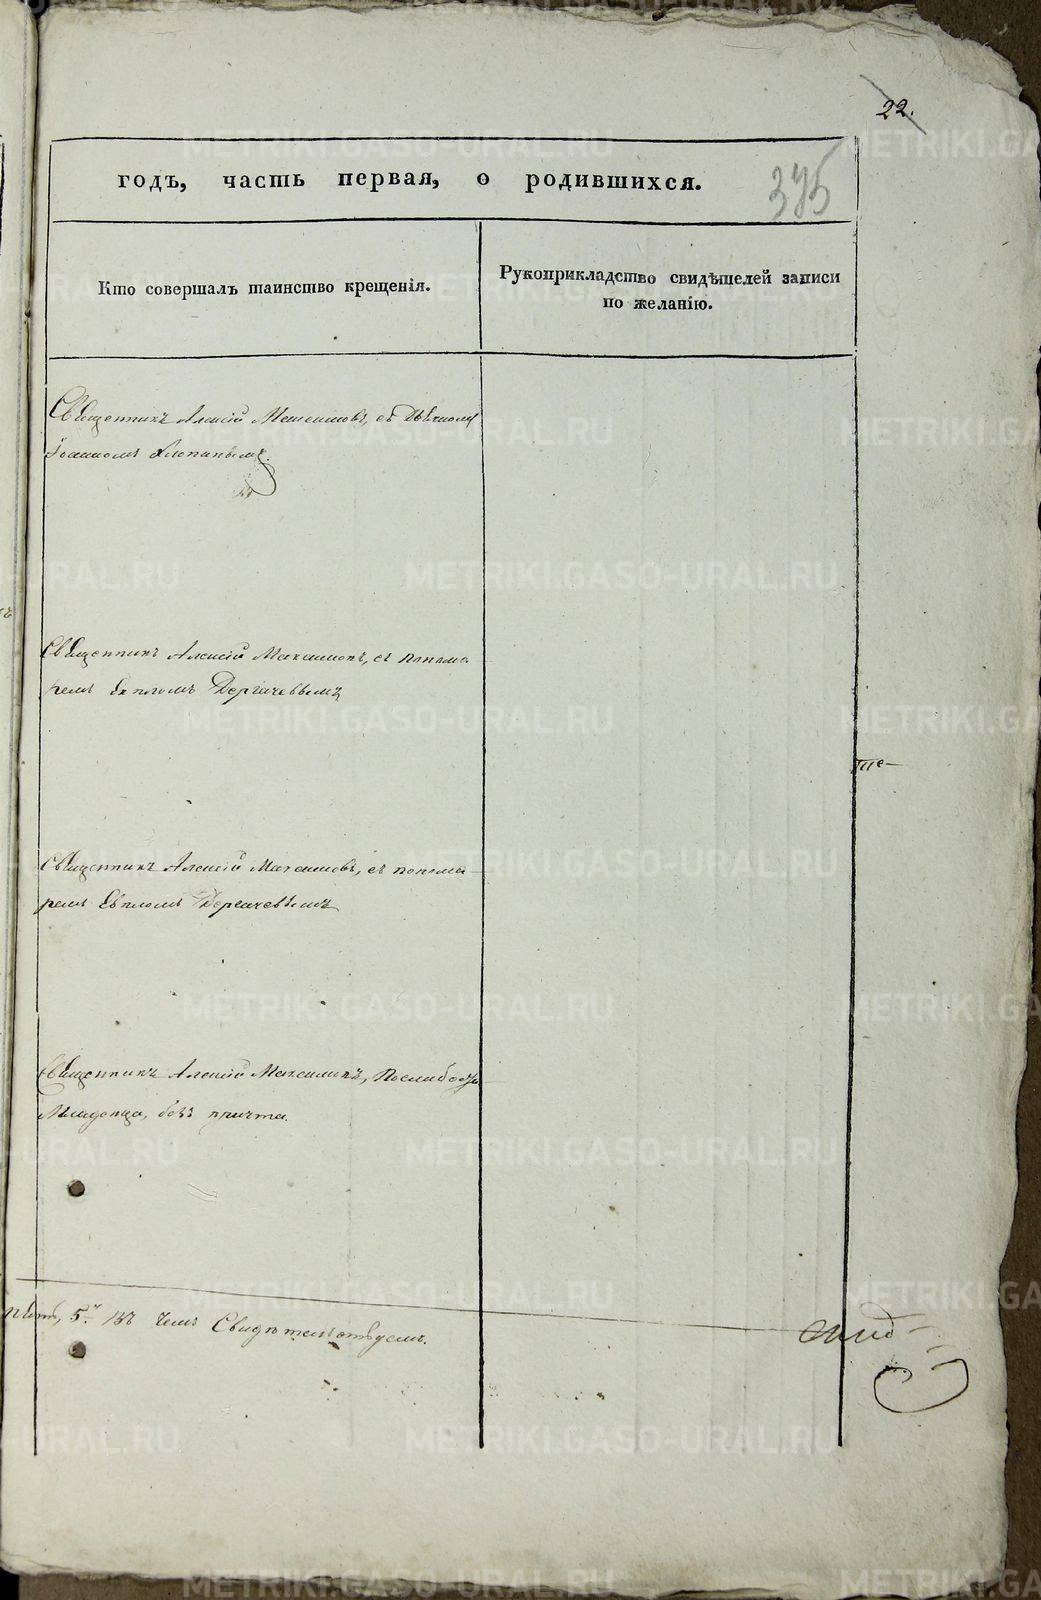 22.
375
годъ, часть первая, о родившихся.
Кто совершалъ таинство крещенія.
Рукоприкладство свидѣтелей записи
по желанію.
Священникъ Алексій Максимовъ, съ Дьячкомъ
Іоанномъ
Священникъ Алексій Максимовъ, съ понома-
ремъ Евпломъ Дергачевымъ
Священникъ Алексій Максимовъ, съ понома-
ремъ Евпломъ Дергачевымъ
Священникъ Алексій Максимовъ,
Младенца, безъ причта.
5. въ чемъ Свидѣтельствуемъ.
METRIKI.GASO-URAL.RU